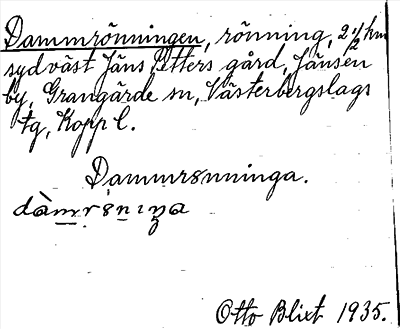 Dammrönningen, rönning, 2 1/2 km
sydväst Jäns Petters gård, Jänsen
by, Grangärde sn, Västerbergslags
tg, Kopp l.
Dammrönninga.
dàmrȣnıŋa
Otto Blixt 1935.